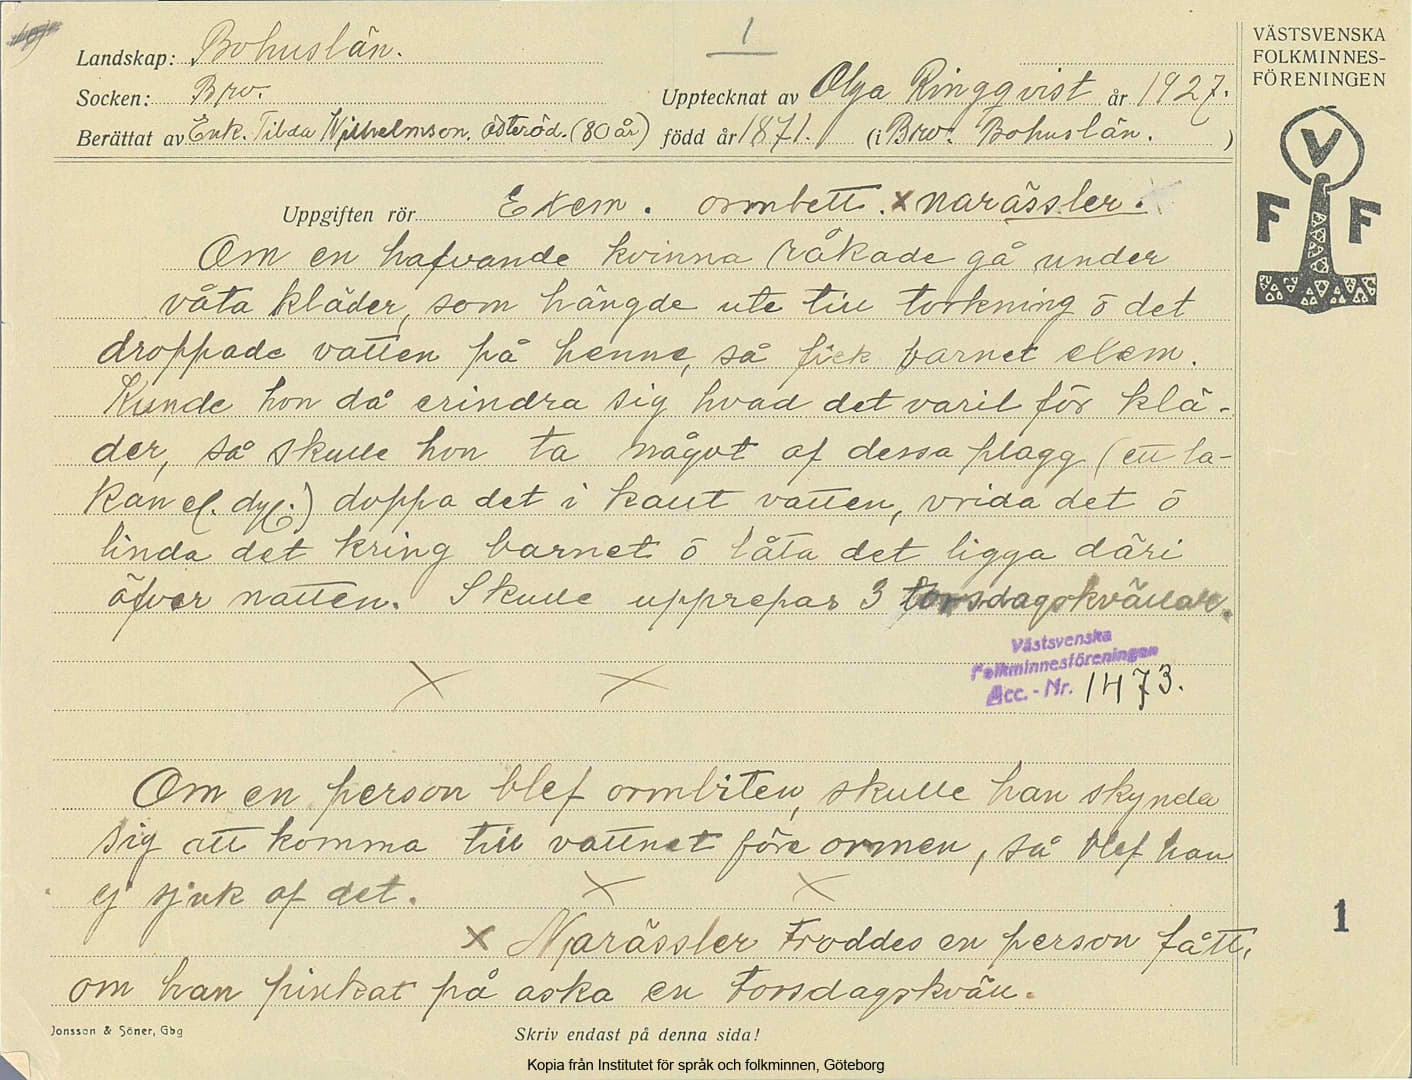 1
VÄSTSVENSKA
FOLKMINNES-
FÖRENINGEN
Landskap: Bohuslän.
Socken: Bro.
Upptecknat av Olga Ringqvist år 1927.
Berättat av Enk. Tilda Wilhelmson. Österöd. (80 år) född år 1871. (i Bro. Bohuslän. )
V
F F
Uppgiften rör Exem. ormbett. x narässler.
Om en hafvande kvinna råkade gå under
våta kläder, som hängde ute till torkning ō det
droppade vatten på henne, så fick barnet exem.
Kunde hon då erindra sig hvad det varit för klä-
der, så skulle hon ta något af dessa plagg (ett la-
kan el. dyl.) doppa det i kallt vatten, vrida det ō
linda det kring barnet ō låta det ligga däri
öfver natten. Skulle upprepas 3 torsdagskvällar.
Västsvenska
Folkminnesföreningen
Acc. - Nr. 1473.
Om en person blef ormbiten, skulle han skynda
sig att komma till vattnet före ormen, så blef han
ej sjuk af det.
1
x Narässler troddes en person fått,
om han pinkat på aska en torsdagskväll.
Jonsson & Söner, Gbg
Skriv endast på denna sida!
Kopia från Institutet för språk och folkminnen, Göteborg